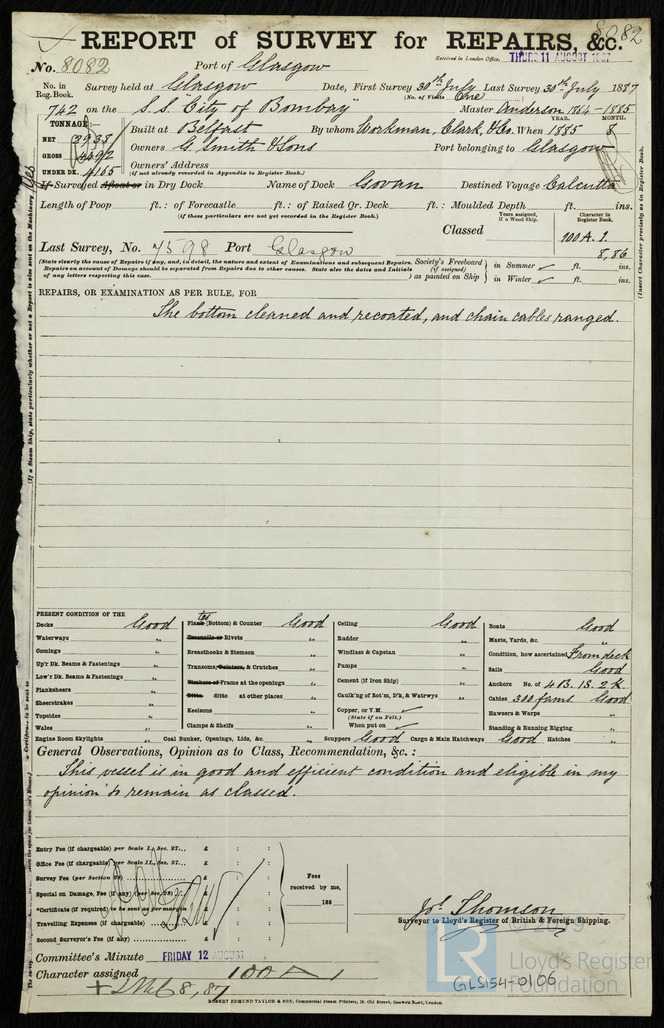 8082
REPORT of SURVEY for REPAIRS, &c.
No. 8082 Port of Glasgow Received in London Office, THURS 11 AUGUST 1887
No. in Reg. Book. Survey held at Glasgow Date, First Survey 30th July Last Survey 30th July 1887
(No. of Visits One)
742 on the S.S. "City of Bombay" Master Anderson 1864-1885
TONNAGE:— YEAR. MONTH.
NET 2938 Built at Belfast By whom Workman, Clark, & Co. When 1885 8
GROSS 4492 Owners G. Smith & Sons Port belonging to Glasgow
UNDER DK. 4165 Owners' Address
(if not already recorded in Appendix to Register Book.)
If Surveyed Afloat or in Dry Dock Name of Dock Govan Destined Voyage Calcutta
Length of Poop ft.: of Forecastle ft.: of Raised Qr. Deck ft.: Moulded Depth ft. ins.
(if these particulars are not yet recorded in the Register Book.)
Years assigned, if a Wood Ship. Character in Register Book.
Classed 100 A. 1.
8, 86
Last Survey, No. 7598 Port Glasgow
(State clearly the cause of Repairs if any, and, in detail, the nature and extent of Examinations and subsequent Repairs.
Repairs on account of Damage should be separated from Repairs due to other causes. State also the dates and Initials
of any letters respecting this case.
Society's Freeboard (if assigned) as painted on Ship
in Summer ✓ ft. ins.
in Winter ✓ ft. ins.
REPAIRS, OR EXAMINATION AS PER RULE, FOR
The bottom cleaned and recoated, and chain cables ranged.
PRESENT CONDITION OF THE
Decks Good
Waterways "
Comings "
Up'r Dk. Beams & Fastenings "
Low'r Dk. Beams & Fastenings "
Planksheers "
Sheerstrakes "
Topsides "
Wales "
Engine Room Skylights "
Plates (Bottom) & Counter Good
Treenails or Rivets "
Breasthooks & Stemson "
Transoms, Pointers, & Crutches "
Timbers or Frame at the openings "
Ditto ditto at other places "
Keelsons "
Clamps & Shelfs "
Coal Bunker, Openings, Lids, &c. "
Ceiling Good
Rudder "
Windlass & Capstan "
Pumps "
Cement (if Iron Ship) "
Caulk'ng of Bot'm, D'k, & Watrwys "
Copper, or Y.M. ✓
(State if on Felt.)
When put on ✓
Scuppers Good Cargo & Main Hatchways Good Hatches "
Boats Good
Masts, Yards, &c. "
Condition, how ascertained From deck
Sails Good
Anchors No. of 4 B. 1 S. 2 K.
Cables 300 fams. Good
Hawsers & Warps "
Standing & Running Rigging "
General Observations, Opinion as to Class, Recommendation, &c.:
This vessel is in good and efficient condition and eligible in my
opinion to remain as classed.
Entry Fee (if chargeable) per Scale I., Sec. 27... £ : :
Office Fee (if chargeable) per Scale II., Sec. 27... £ : :
Survey Fee (per Section 28) £ : :
Special on Damage, Fee (if any) (per Sec. 28) £ : :
*Certificate (if required) to be sent as per margin
Travelling Expenses (if chargeable) £ : :
Second Surveyor's Fee (if any) £ : :
Fees received by me, 188
Jos. Thomson
Surveyor to Lloyd's Register of British & Foreign Shipping.
Committee's Minute FRIDAY 12 AUGUST
Character assigned 100 A 1
8, 87
ROBERT EDMUND TAYLOR & SON, Commercial Steam Printers, 19, Old Street, Goswell Road, London.
(Insert Character precisely as in Register Book.)
Yes
LR
© 2019
Lloyd's Register
Foundation
GLS154-0106